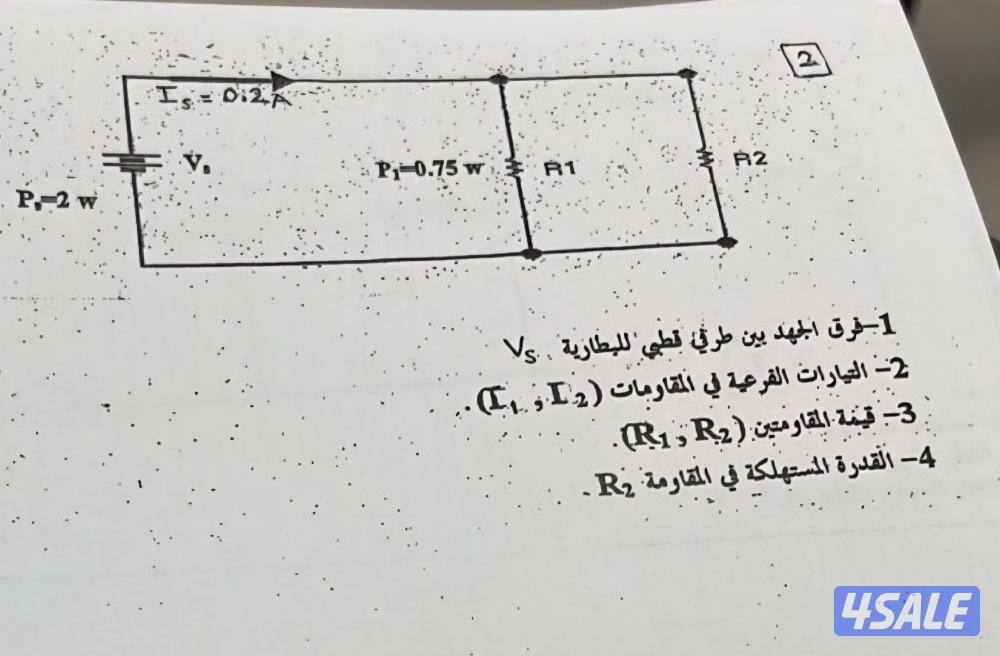 2
I s = 0.2 A
P₁=0.75 w
R1
R2
Vs
Ps=2 w
1-فرق الجهد بين طرفي قطبي للبطارية Vs.
2- التيارات الفرعية في المقاومات (I₁ , I₂).
3- قيمة المقاومتين (R₁ , R₂).
4- القدرة المستهلكة في المقاومة R₂.
4SALE